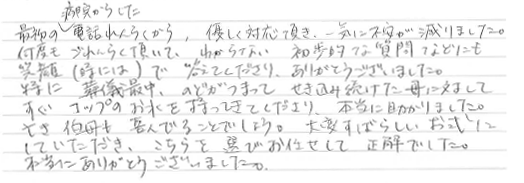 病院からした
最初の電話れんらくから、優しく対応頂き、一気に不安が減りました。
何度もごれんらく頂いて、わからない 初歩的な質問などにも
笑顔(時には)で答えてくださり、ありがとうございました。
特に 葬儀最中、のどがつまって せき込み続けた母に対して
すぐ コップのお水を持ってきてくださり、本当に助かりました。
亡き伯母も 喜んでることでしょう。 大変すばらしいお式に
していただき、こちらを選びお任せして 正解でした。
本当にありがとうございました。